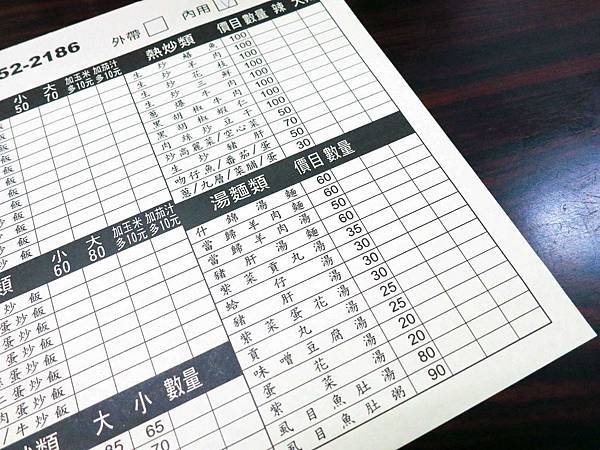 52-2186
外帶 內用
小 大 加玉米多10元 加茄汁多10元
50 70
熱炒類 價目 數量 辣
生炒鱔魚 100
生炒羊肉 100
生炒花枝 100
生炒三鮮 100
蔥爆牛肉 100
黑胡椒牛肉 100
黑胡椒蝦仁 100
肉絲炒豆干 100
炒高麗菜/空心菜 50
生炒豬肝 70
吻仔魚/番茄/蛋 50
蔥/九層/菜脯/蛋 30
湯麵類 價目 數量
什錦湯麵 60
當歸羊肉麵 60
當歸羊肉湯 50
豬肝湯麵 60
紫菜貢丸湯 35
蛤仔湯 30
豬肝湯 30
紫菜蛋花湯 30
貢丸湯 25
味噌豆腐湯 20
蛋花湯 20
紫菜湯 20
虱目魚肚湯 80
虱目魚肚粥 90
類 小 大 加玉米多10元 加茄汁多10元
60 80
炒飯
蛋炒飯
蛋炒飯
蛋炒飯
蛋炒飯
蛋炒飯
肉蛋炒飯
牛炒飯
類 大 小 數量
85 65
70